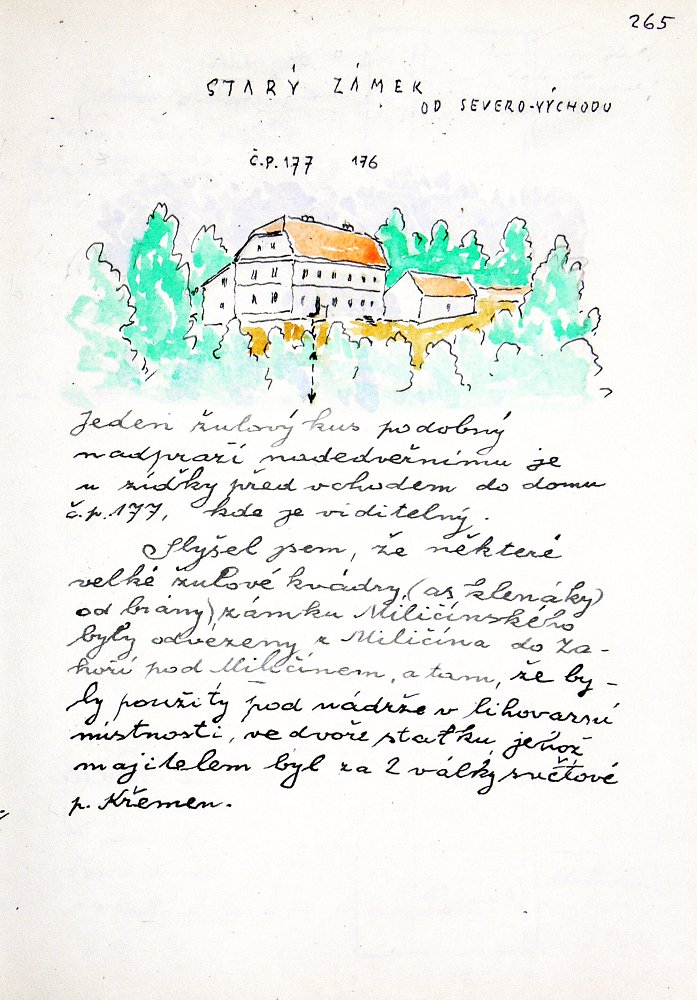 265
STARÝ ZÁMEK
OD SEVERO-VÝCHODU
Č.P. 177 176
Jeden žulový kus podobný
nadpraží nadedveřnímu je
u zídky před vchodem do domu
č.p. 177, kde je viditelný.
Slyšel jsem, že některé
velké žulové kvádry, (as klenáky)
od brány) zámku Miličínského
byly odvezeny z Miličína do Za-
hoří pod Miličínem, a tam, že by-
ly použity pod nádrže v lihovarsú
místnosti, ve dvoře statku, jehož
majitelem byl za 2 války světové
p. Křemen.